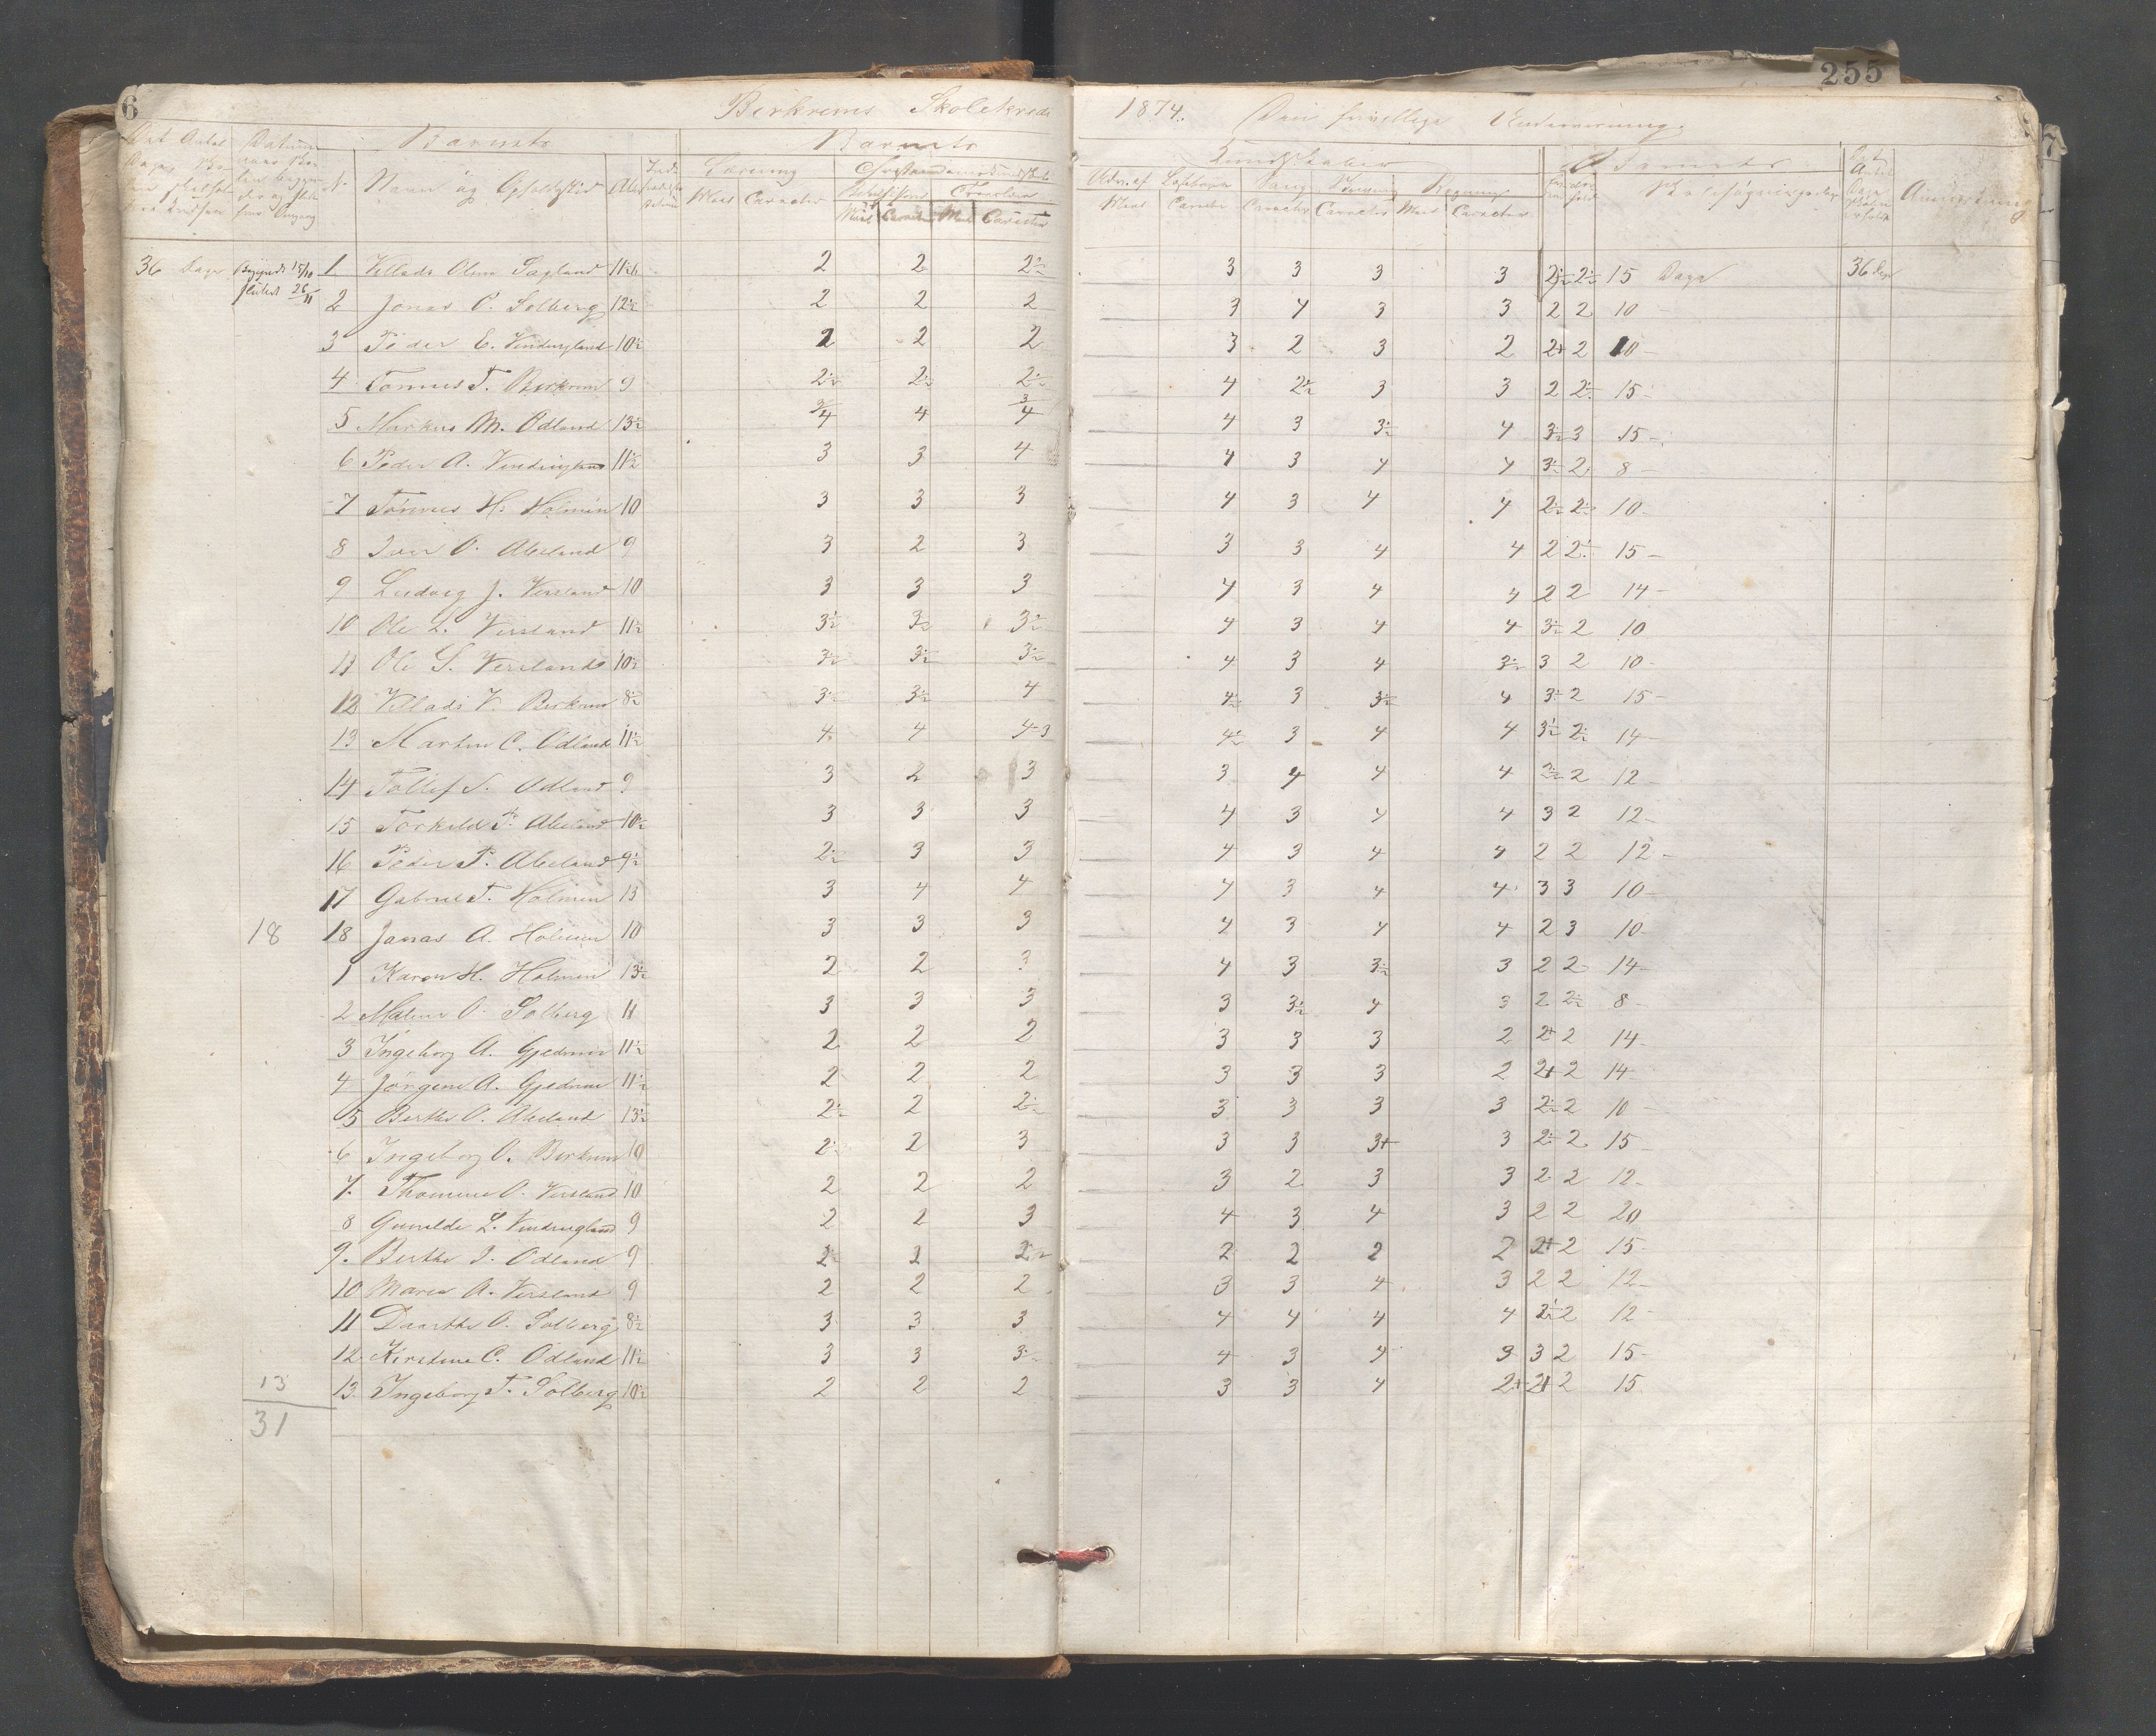 6 Birkrems Skolekreds 1874. Den frivillige Undervisning. 255
Barnets Barnets Kundskaber Barnets
No Navn og Opholdssted Læsning Sang Skrivning Regning Anmærkning
Maal Caracter Maal Caracter Maal Caracter Maal Caracter Caracter Caracter Maal Caracter
36 Dage Begyndt 15/10 1 Villads Olsen Sagland 11½ 2 2 2½ 3 3 3 3 2½ 2½ 15 Dage 36 Dage
sluttet 26/11 2 Jonas O. Solberg 12½ 2 2 2 3 4 3 3 2 2 10
3 Peder E. Vindingland 10½ 2 2 2 3 2 3 2 2+ 2 10
4 Tönnes T. Birkrem 9 2½ 2½ 2½ 4 2½ 3 3 2 2½ 15
5 Markus M. Ödland 13½ 3/4 4 3/4 4 3 3½ 4 3½ 3 15
6 Peder A. Vindingland 11½ 3 3 4 4 3 4 4 3½ 2 8
7 Tönnes H. Holmen 10 3 3 3 4 3 4 4 2½ 2½ 10
8 Iver O. Abeland 9 3 2 3 3 3 4 4 2 2½ 15
9 Ludvig J. Versland 10 3 3 3 4 3 4 4 2 2 14
10 Ole L. Versland 11½ 3½ 3½ 3½ 4 3 4 4 3½ 2 10
11 Ole S. Versland 10½ 3½ 3½ 3½ 4 3 4 3½ 3 2 10
12 Villads V. Birkrem 8½ 3½ 3½ 4 4½ 3 3½ 4 3½ 2 15
13 Martin C. Ödland 11½ 4 4 4-3 4½ 3 4 4 3½ 2½ 14
14 Tollef S. Ödland 9 3 2 3 3 4 4 4 2 12
15 Torkild P. Abeland 10½ 3 3 3 4 3 4 4 3 2 12
16 Peder P. Abeland 9½ 2½ 3 3 4 3 4 4 2 2 12
17 Gabriel T. Holmen 13 3 4 4 4 3 4 4 3 3 10
18 18 Jonas A. Holmen 10 3 3 3 4 3 4 4 2 3 10
1 Karen H. Holmen 13½ 2 2 3 4 3 3½ 3 2 2 14
2 Malene O. Solberg 11 3 3 3 3 3½ 4 3 2 2½ 8
3 Ingeborg A. Gjedrem 11½ 2 2 2 3 3 3 2 2+ 2 14
4 Jörgine A. Gjedrem 11½ 2 2 2 3 3 3 2 2+ 2 14
5 Berthe O. Abeland 13½ 2½ 2 2½ 3 3 3 3 2½ 2 10
6 Ingeborg O. Birkrem 10 2½ 2 3 3 3 3+ 3 2½ 2 15
7. Thomine O. Versland 10 2 2 2 3 2 3 3 2 2 12
8 Gunilde L. Vindingland 9 2 2 3 4 3 4 3 2 2 20
9. Berthe I. Ödland 9 2½ 2 2½ 2 2 2 2 2+ 2 15
10 Maren A. Versland 9 2 2 2 3 3 4 3 2 2 12
11 Daarthe O. Solberg 8½ 3 3 3 4 4 4 4 2½ 2 12
12 Kirstine C. Ödland 11½ 3 3 3½ 4 3 4 3 3 2 15
13 13 Ingeborg T. Solberg 10½ 2 2 2 3 3 4 2+ 2+ 2 15
31